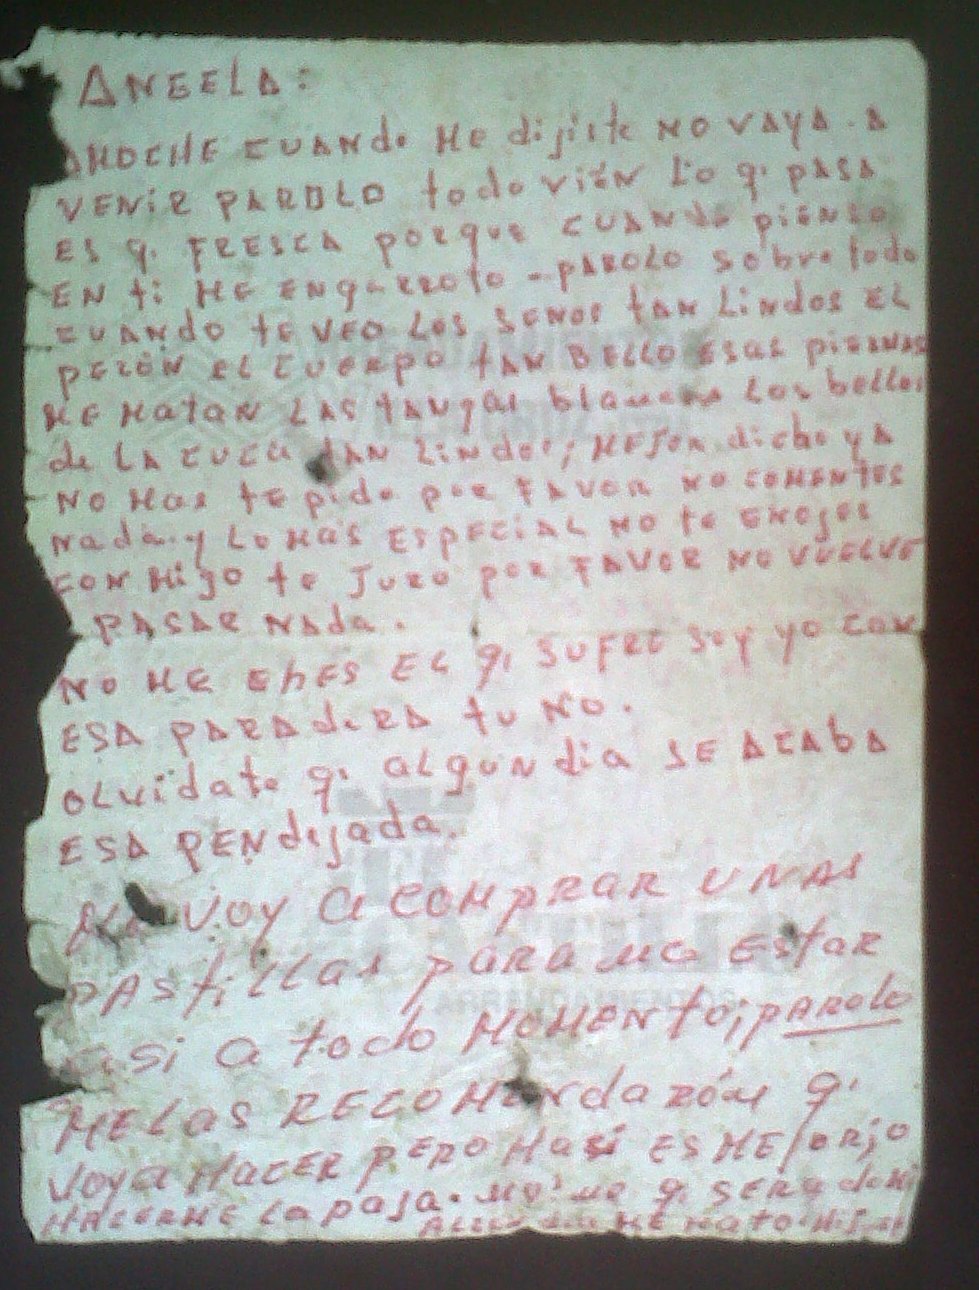 ANGELA:
ANOCHE CUANDO ME dijiste NO VAYA A
VENIR PAROLO todo VIÉN Lo q. PASA
ES q. FRESCA porque CUANDO pienso
EN ti ME ENgARROTO - PAROLO sobre todo
CUANDO te VEO LOS SENOS tAN LiNdOS EL
PEZÓN EL CUERpO tAN BELLO ESAS piERNAS
ME MAtAN LAS tANgAS blANCAS LOS bellos
de LA CUCA tAN LiNdOS; dicho yA
NO MAS te pido por FAVOR NO COMENTES
NAdA y LO MAS ESPECIAL NO te ENOJES
CON MiJO te JURO por FAVOR NO VUELVE
PASAR NAdA.
NO ME EL q. SUFRE soy yo CON
ESA PARAdERA tu NO.
OLVÍdate q. ALgUN dia SE ACAbA
ESA PENdEjAdA.
Me VOY A COMPRAR UNAS
PAStILLAS PARA NO EStAR
ASI A todo MOMENTO; PAROLO
ME LAS RECOMENdARÓN q.
VOY A HACER PERO HASÍ ES MEJOR; O
HACERME LA PAJA. NO! NO q. SERA de Mi
ME MATO